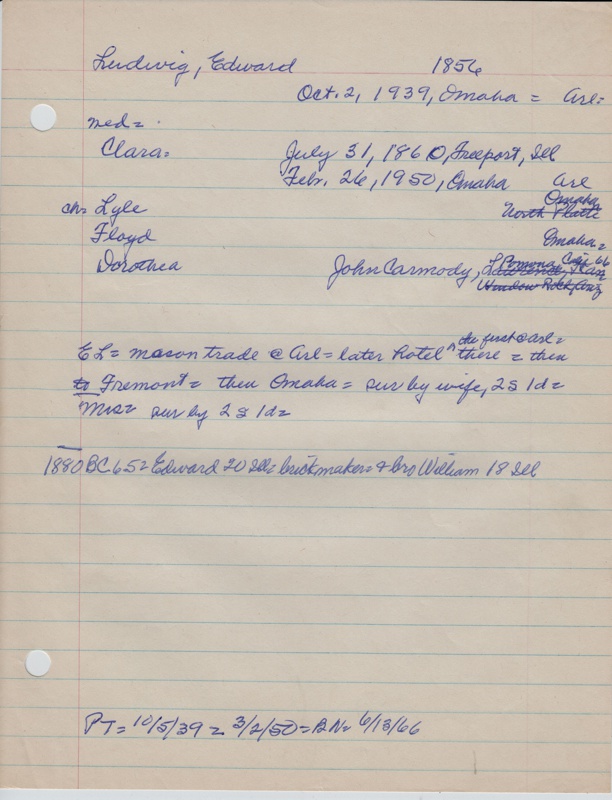 Ludwig, Edward 1856
Oct. 2, 1939, Omaha = Arl=
med=
Clara= July 31, 1860, Freeport, Ill
Feb. 26, 1950, Omaha Arl
Omaha
ch= Lyle North Platte
Floyd Omaha=
Dorothea John Carmody, Pomona, Cal 66
Window Rock, Ariz
the first @ Arl=
EL= mason trade @ Arl= later hotel ^ there = then
to Fremont= then Omaha= sur by wife, 2s 1d=
Mrs= sur by 2s 1d=
1880 BC 65= Edward 20 Ill= brickmaker= & bro William 18 Ill
PT= 10/5/39 = 3/2/50= BN= 6/13/66